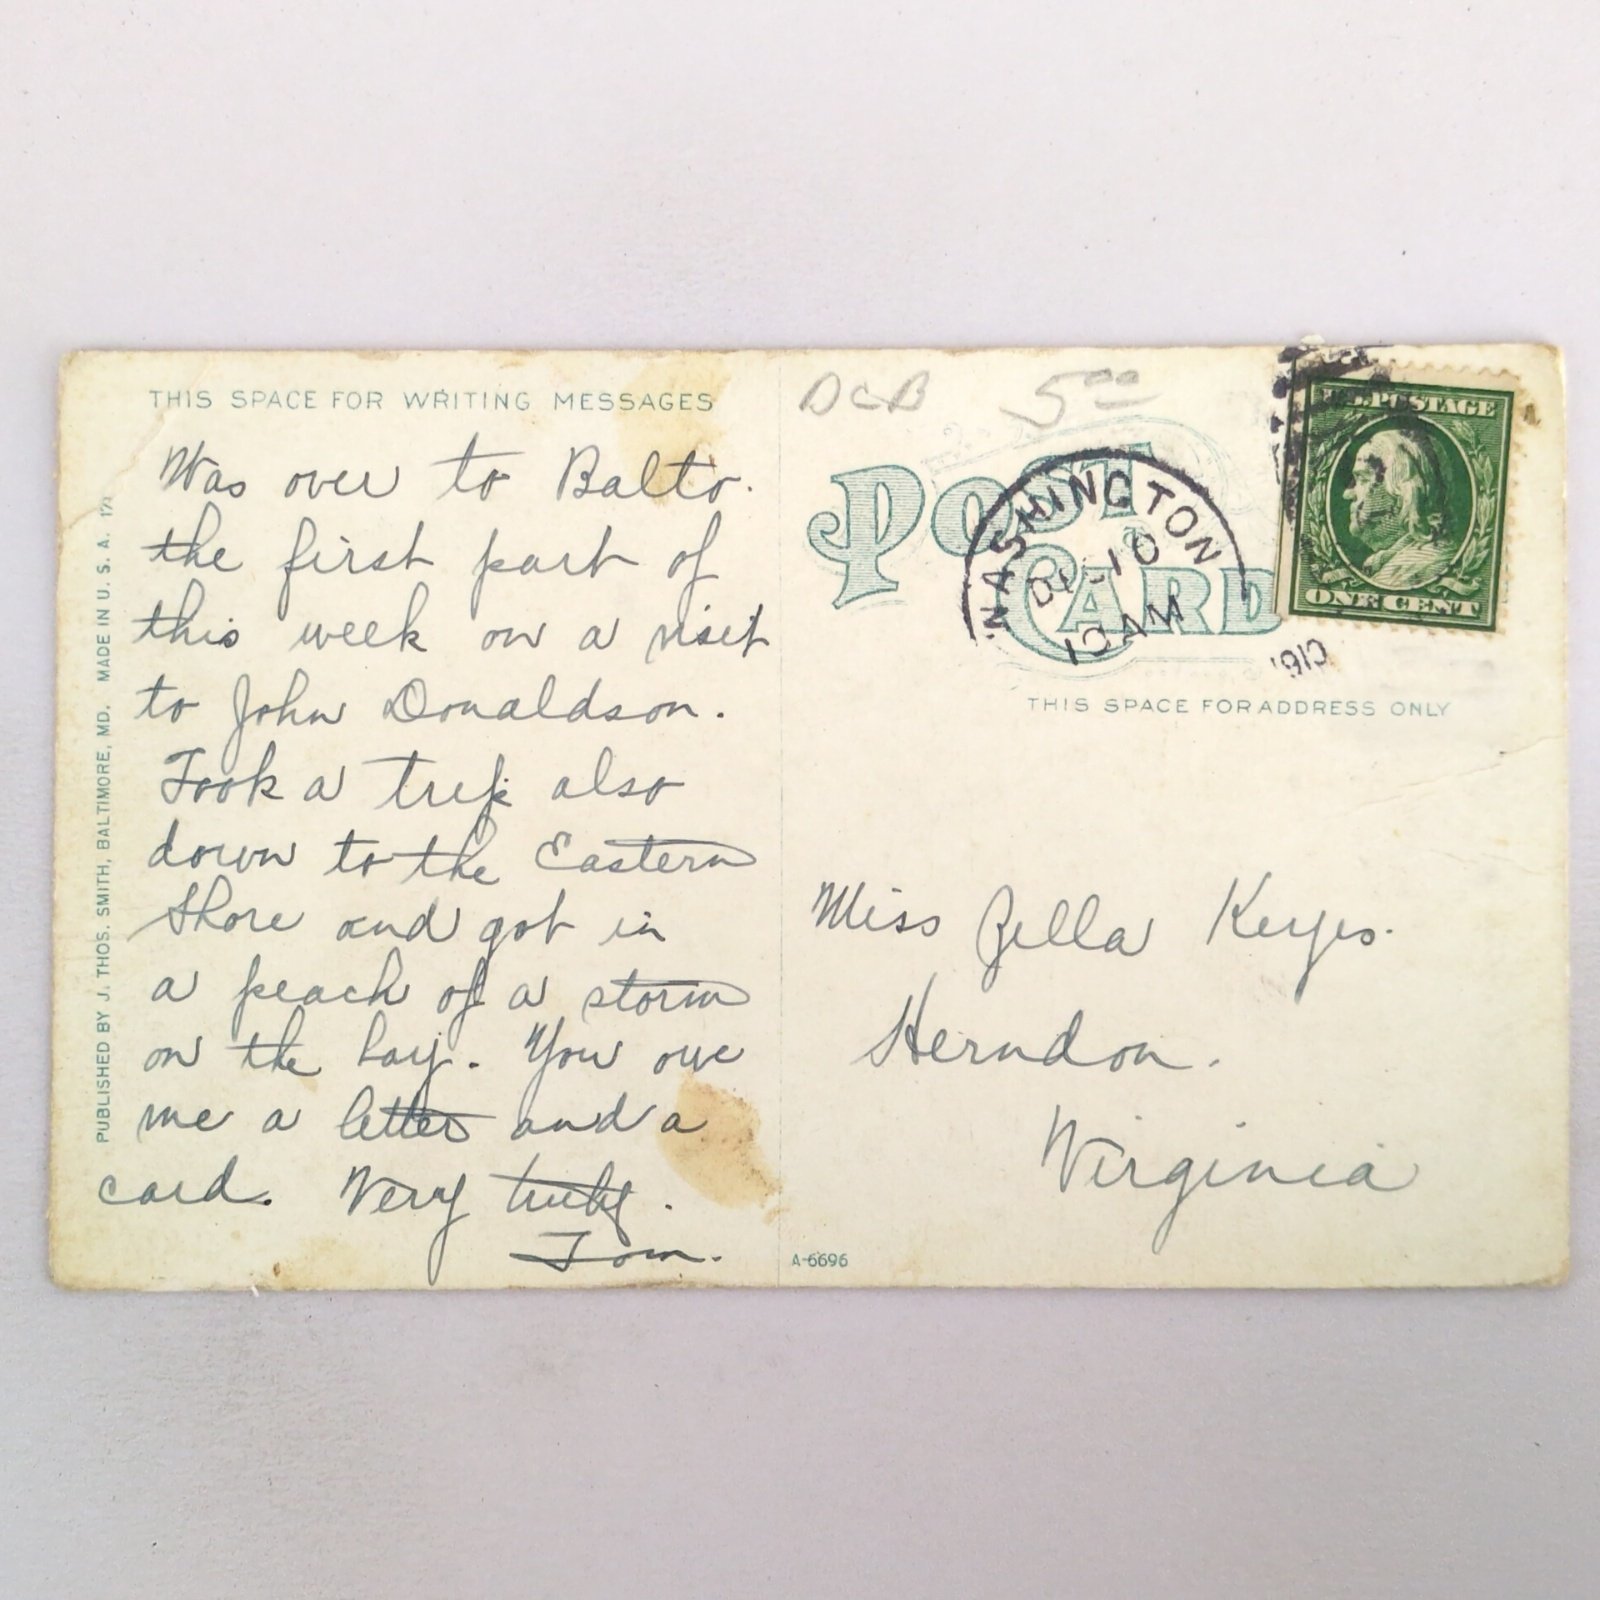 THIS SPACE FOR WRITING MESSAGES
Was over to Balto.
the first part of
this week on a visit
to John Donaldson.
Took a trip also
down to the Eastern
Shore and got in
a peach of a storm
on the bay. You owe
me a letter and a
card. Very truly.
Tom.
PUBLISHED BY J. THOS. SMITH, BALTIMORE, MD. MADE IN U. S. A.
DCB 500
POST CARD
WASHINGTON
10
10 AM
1910
U.S. POSTAGE
ONE CENT
THIS SPACE FOR ADDRESS ONLY
Miss Zella Keyes.
Herndon.
Virginia
A-6696